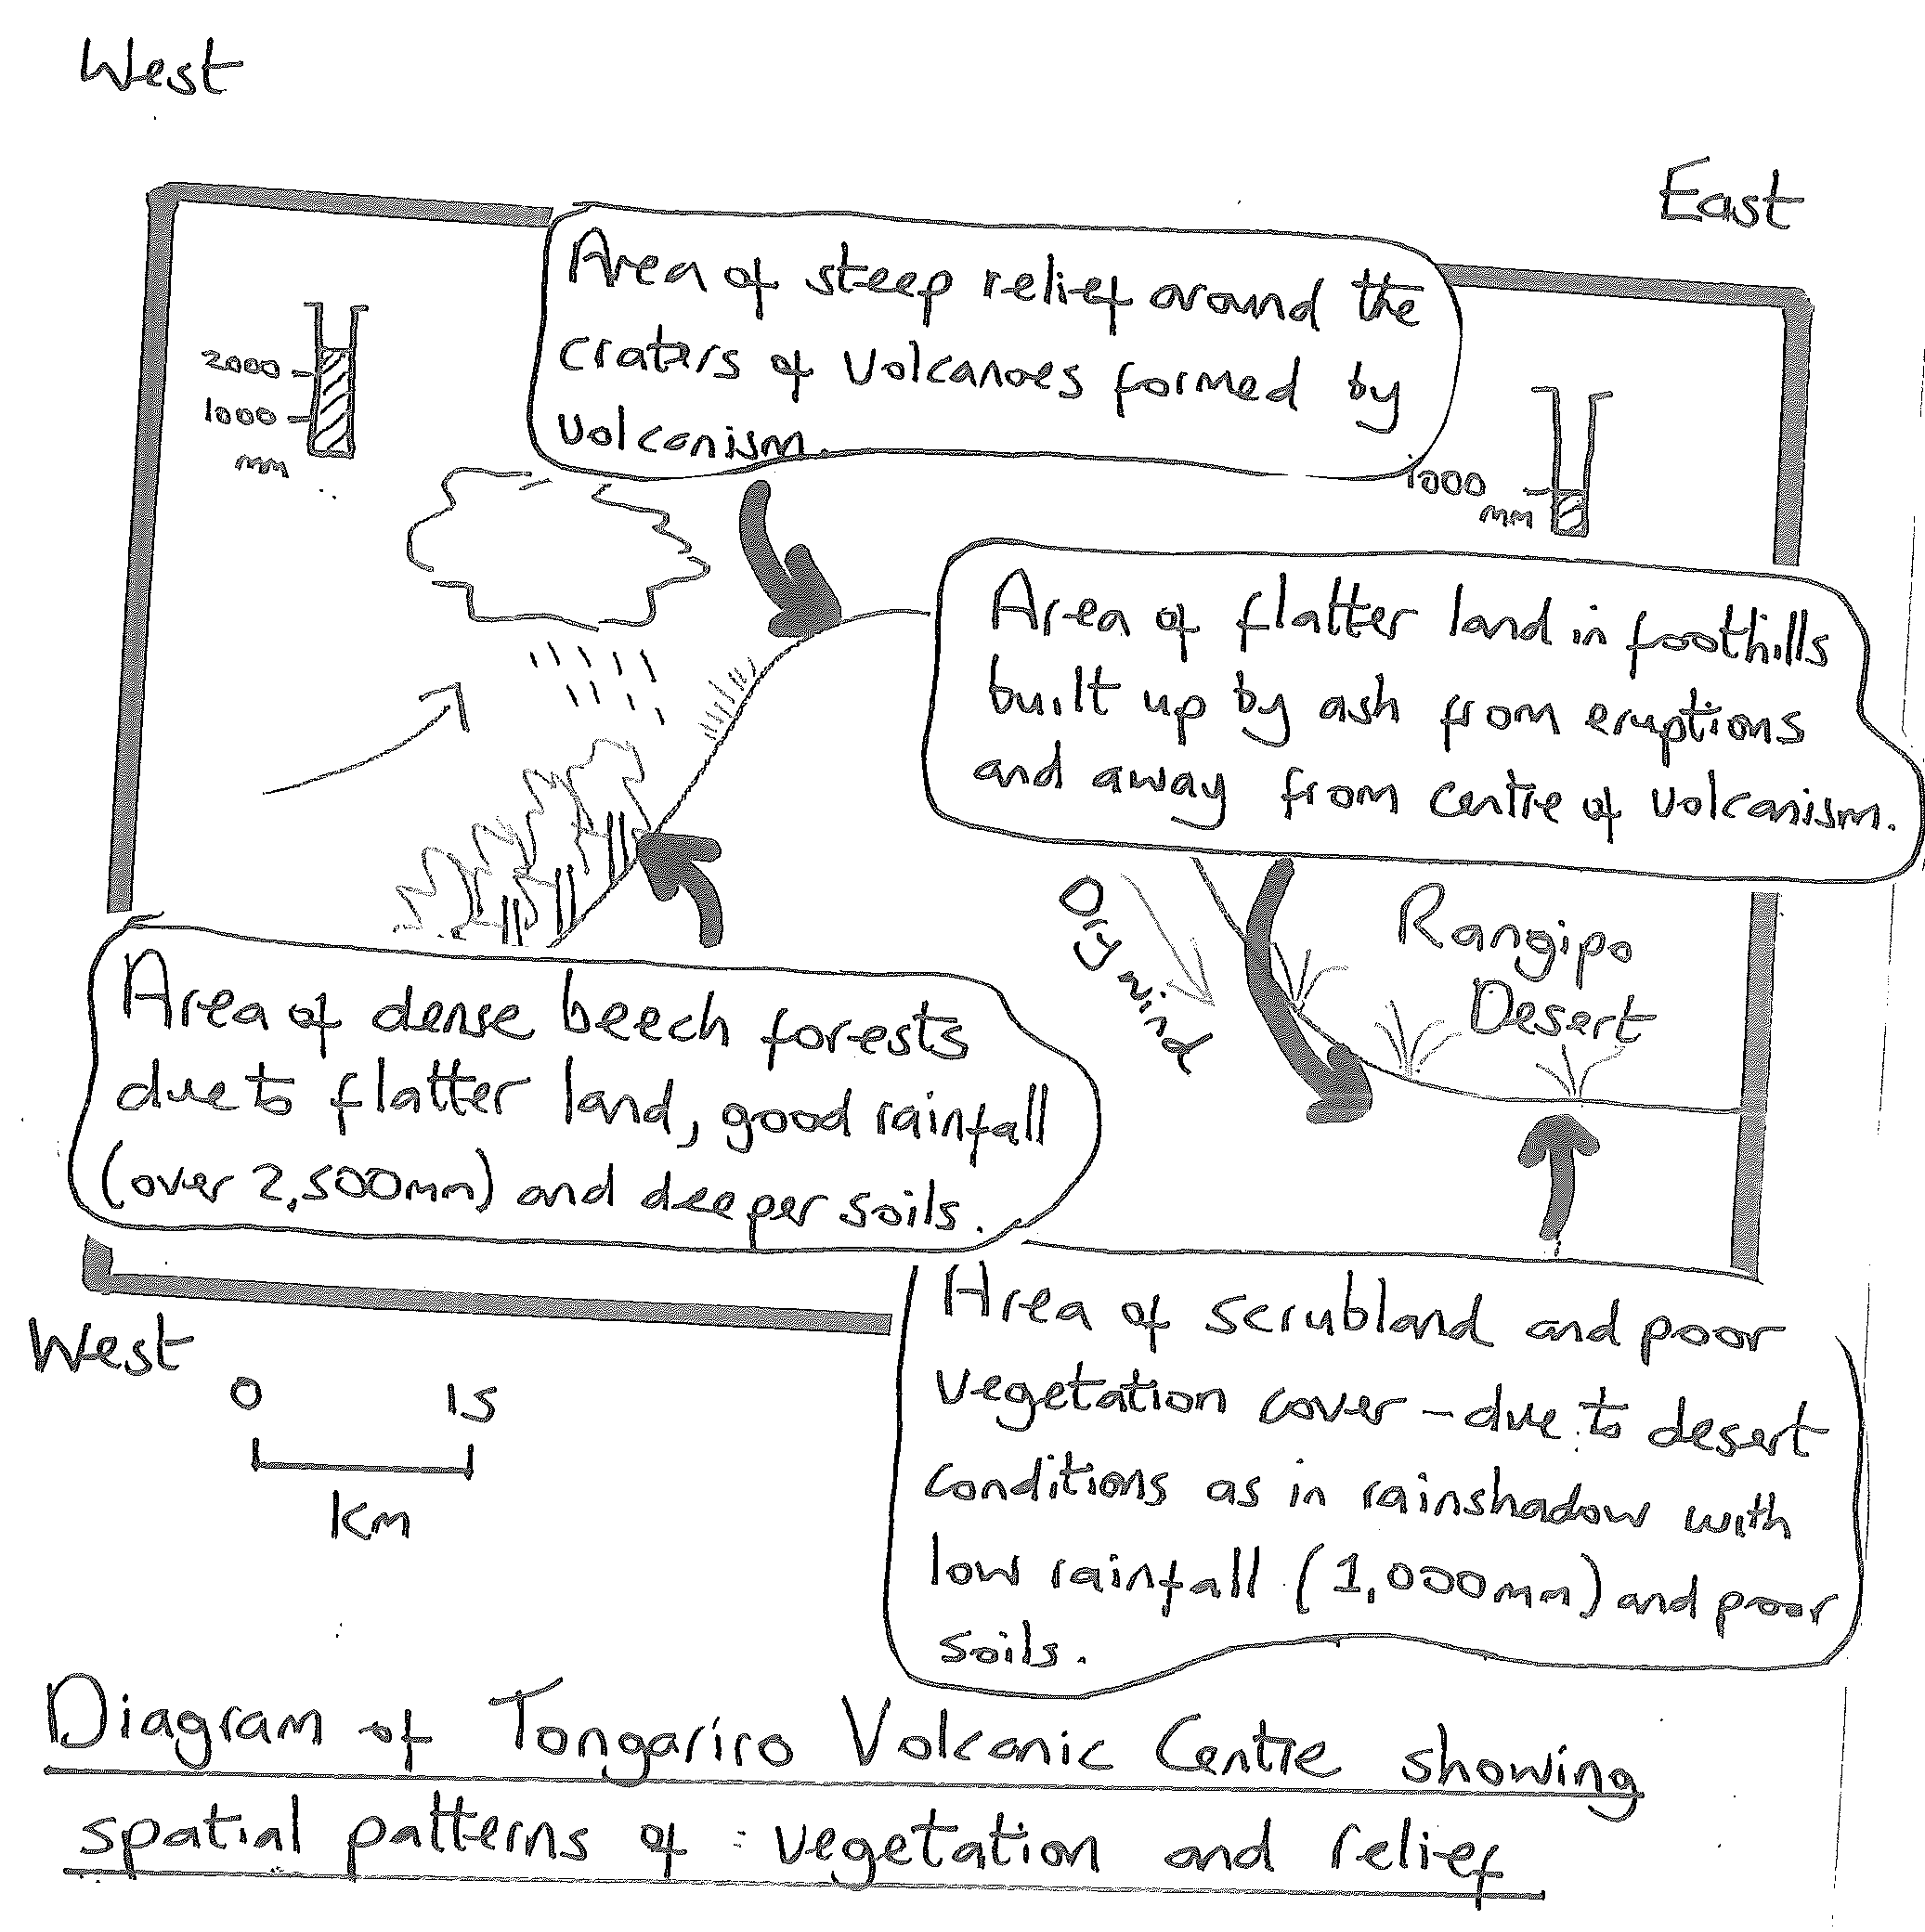 West
East
Area of steep relief around the
craters of volcanoes formed by
volcanism.
2000
1000
mm
1000
mm
Area of flatter land in foothills
built up by ash from eruptions
and away from centre of volcanism.
Dry wind
Rangipo
Desert
Area of dense beech forests
due to flatter land, good rainfall
(over 2,500mm) and deeper soils.
West
0 15
Km
Area of scrubland and poor
vegetation cover - due to desert
conditions as in rainshadow with
low rainfall (1,000mm) and poor
soils.
Diagram of Tongariro Volcanic Centre showing
spatial patterns of vegetation and relief